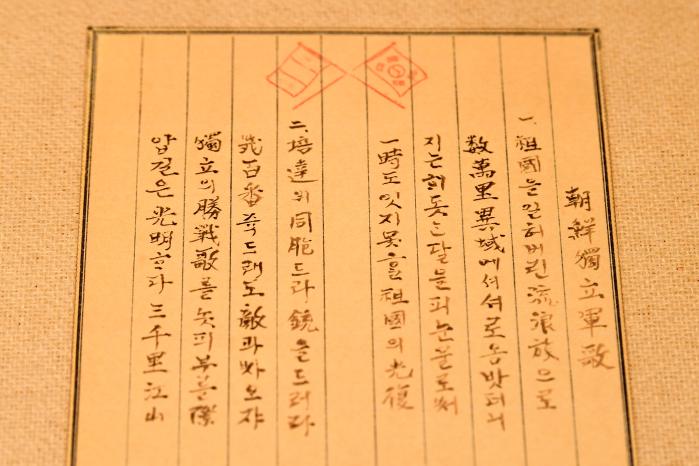 朝鮮獨立軍歌
一. 祖國을 일허버린 流浪族으로
数萬里異域에서 서로
지는 히 돗는 달 눈물로써
一時도 잇지못할 祖國의 光復
二. 培達의 同胞드라 銃을드러라
幾百番 죽드래도 敵과 싸오쟈
獨立의 勝戰歌를 놋피부를際
압길은 光明하다 三千里江山